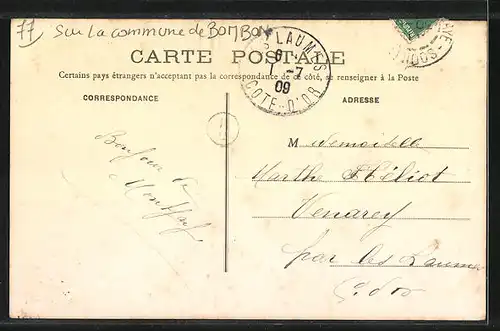 77 Sur La commune de BOMBON
CARTE POSTALE
Certains pays étrangers n'acceptant pas la correspondance de ce côté, se renseigner à la Poste
CORRESPONDANCE
ADRESSE
LAUMES
1 -7
09
COTE-D'OR
Bonjour de
Mademoiselle
Marthe
Venarey
par les Laumes
C. d'or